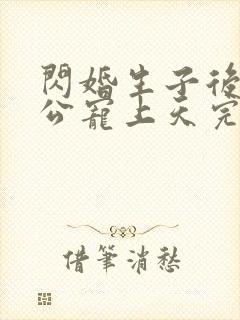 閃婚生子後
公寵上天完
借筆消愁